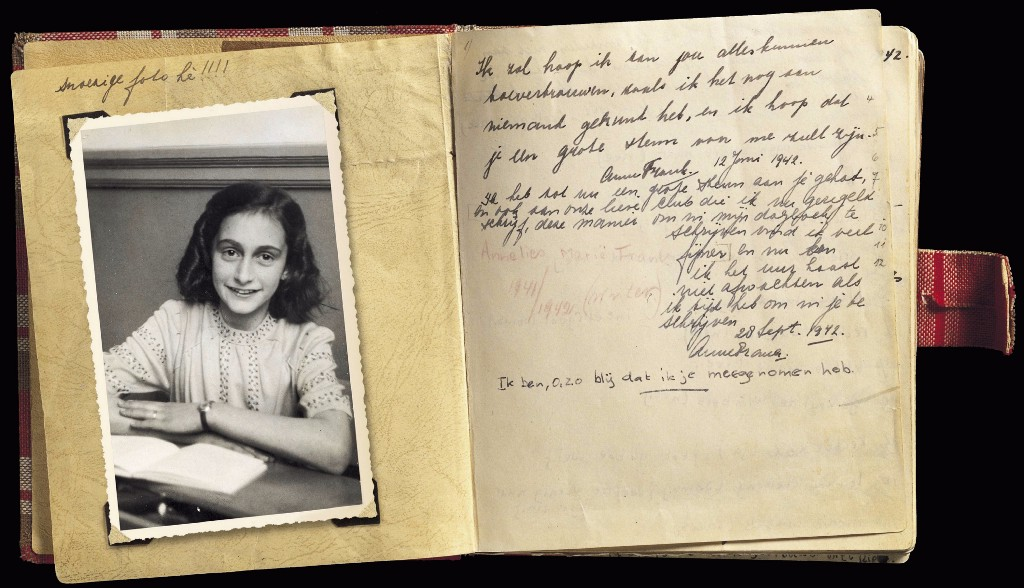 snoezige foto hè!!!!
42.
Ik zal hoop ik aan jou alles kunnen
toevertrouwen, zoals ik het nog aan
niemand gekund heb, en ik hoop dat
je een grote steun van me zult zijn.
Anne Frank. 12 Juni 1942.
Ik heb tot nu een grote steun aan je gehad,
en ook aan onze lieve club die ik nu geregeld
schrijf, deze manier om in mijn dagboek te
schrijven vind ik veel
fijner en nu kan
ik het uur haast
niet afwachten als
ik tijd heb om in je te
schrijven
28 Sept. 1942.
Anne Frank.
Annelies Marie Frank
1941/
1942.
Ik ben, o, zo blij dat ik je meegenomen heb.